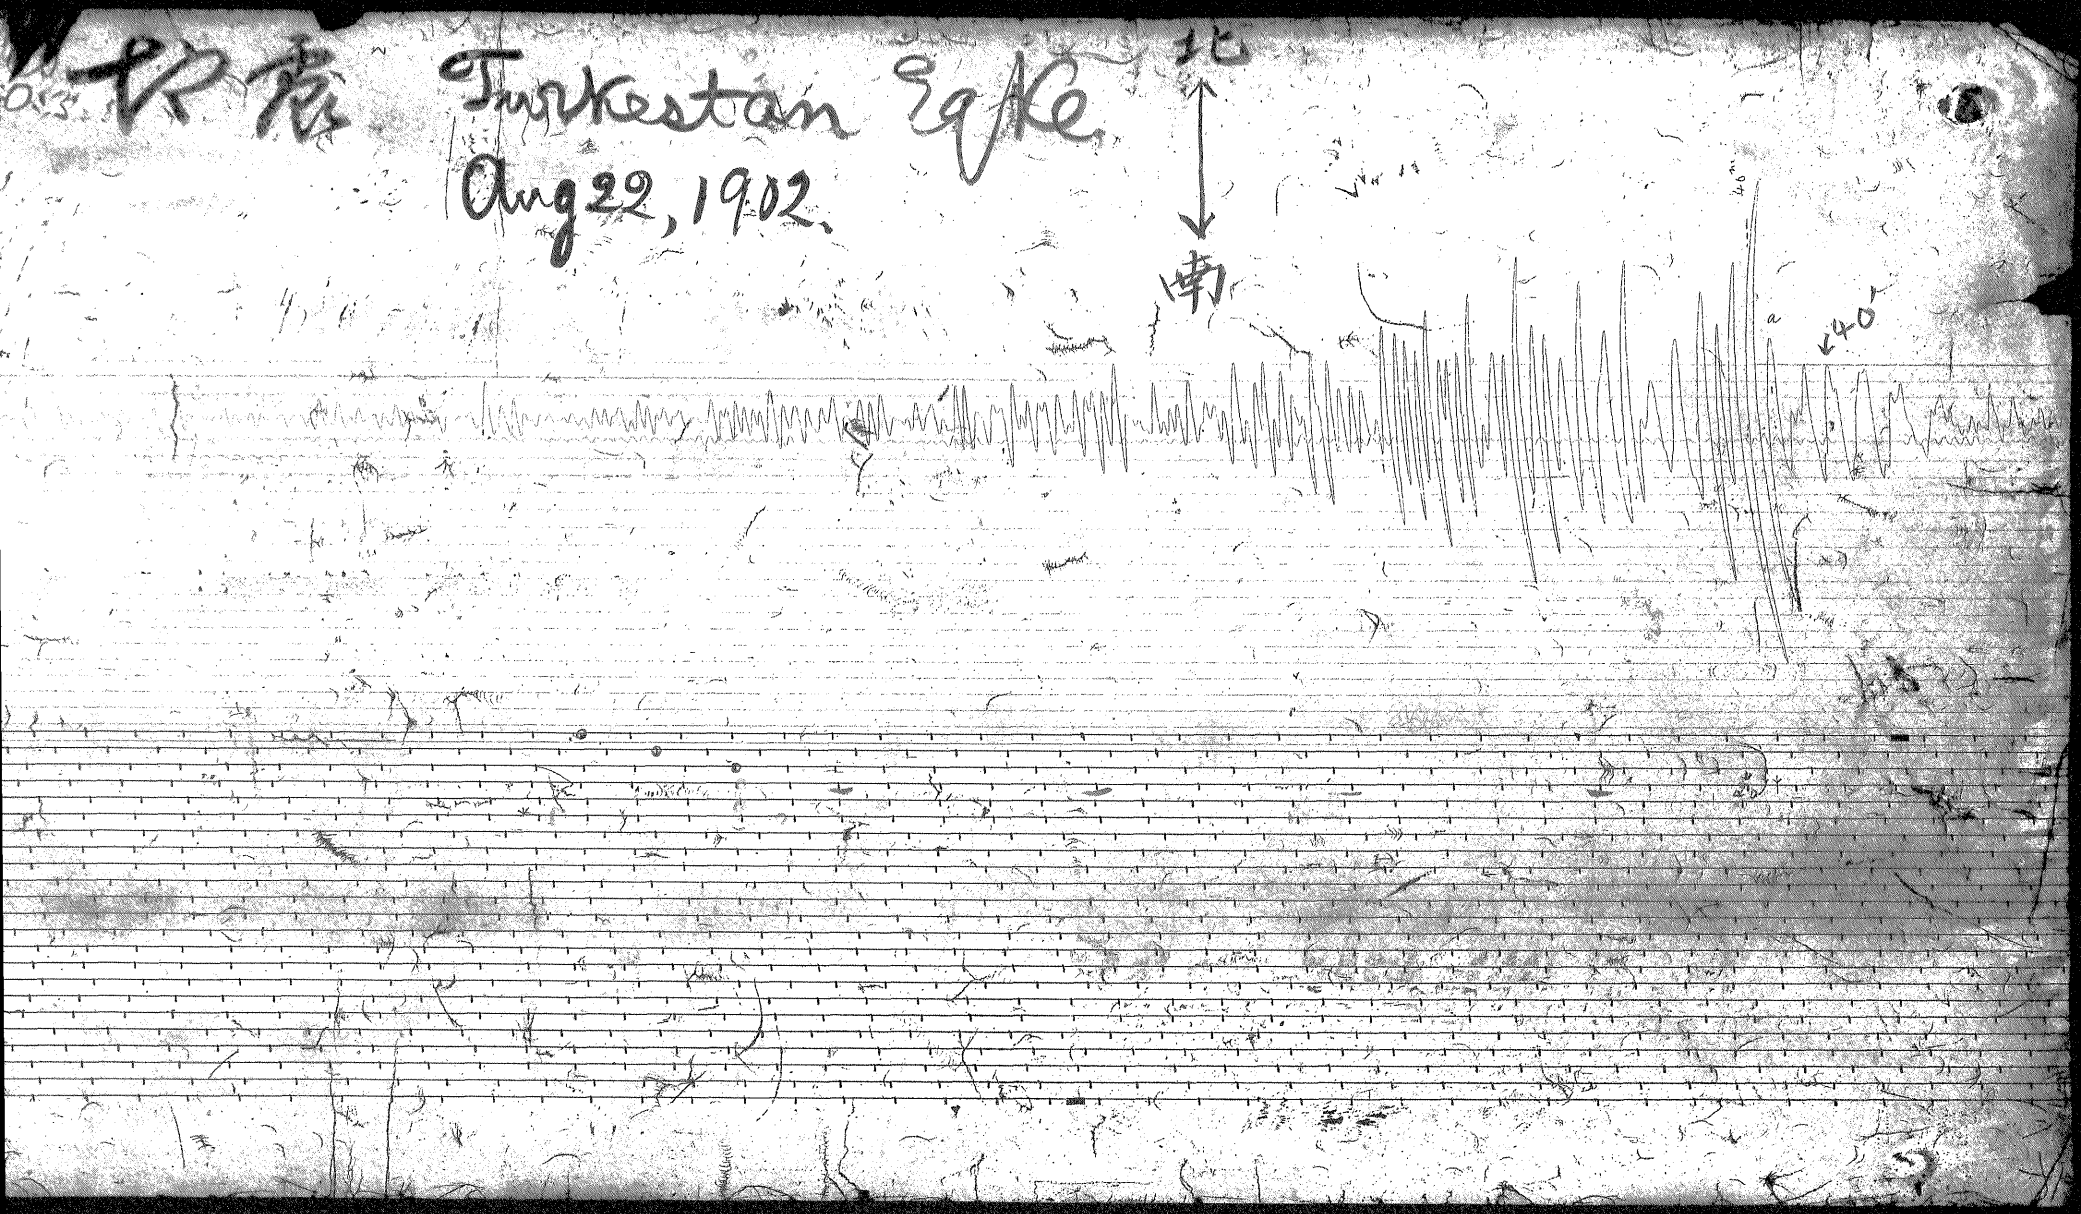 震 Turkestan Eqke.
Aug 22, 1902.
北
南
40'